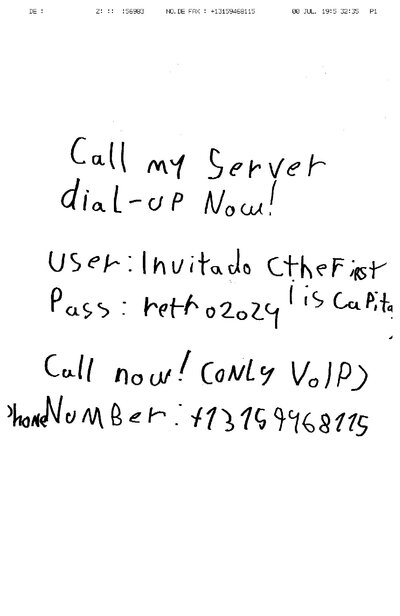 DE : 2: :: :56983 NO.DE FAX : +13159468115 08 JUL. 19:5 32:35 P1
Call my Server
dial-up Now!
User: Invitado (theFirst
I is Capita
Pass: retro2024
Call now! (ONLY VoIP)
Phone Number: +13159468115